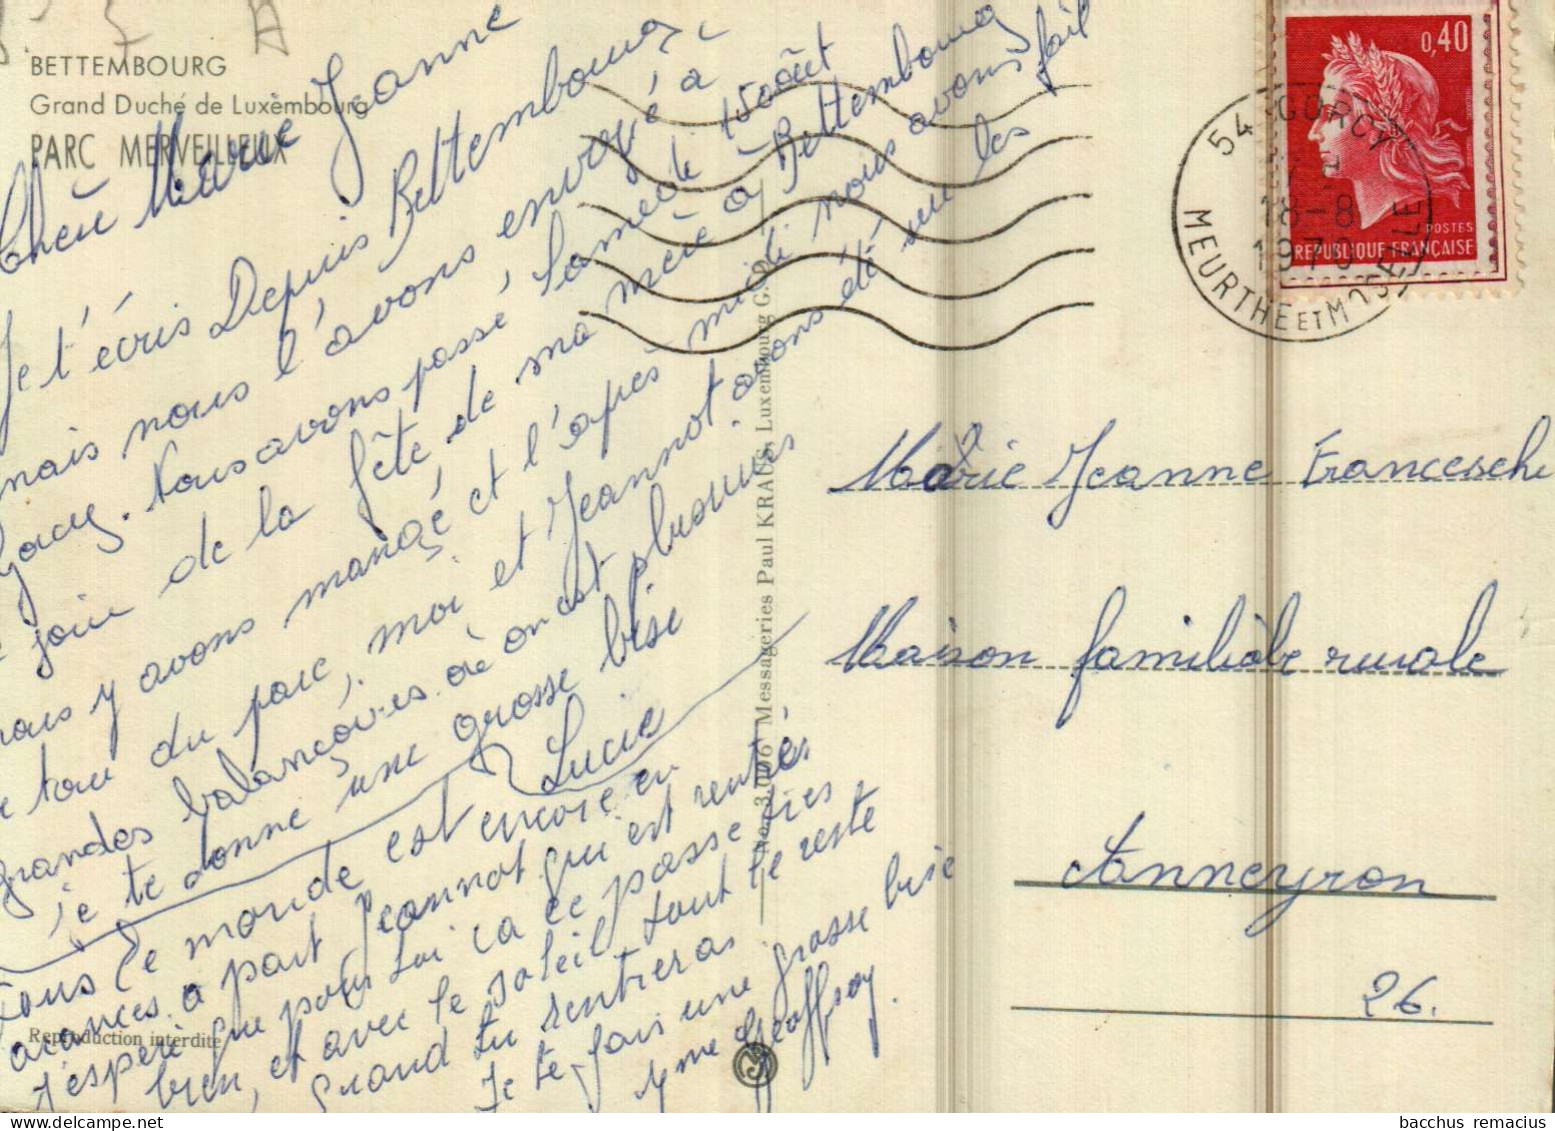 BETTEMBOURG
Grand Duché de Luxèmbourg
PARC MERVEILLEUX
Chere Marie Jeanne
Je t'écris Depuis Bettembourg,
mais nous l'avons envoyé a
Gorcy. Nous avons passé, Samedi 15 août
jour de la fête de ma mère à Bettembourg
nous y avons mangé et l'après midi nous avons fait
le tour du parc, moi et Jeannot avons été sur les
grandes balançoires où on est plusieurs
je te donne une grosse bise
Lucie
Tous le monde est encore en
vacances a part Jeannot qui est rentré
J'espère que pour Lui ca ce passe très
bien, et avec le soleil tout le reste
quand tu rentreras
Je te fais une grosse bise
Mme Geoffroy.
Reproduction interdite
No. 3.006 Messageries Paul KRAUS, Luxembourg G. D.
0,40
POSTES
REPUBLIQUE FRANÇAISE
54 GORCY
18-8
1970
MEURTHE ET MOSELLE
Marie Jeanne Franceschi
Maison familiale rurale
Anneyron
26.
bacchus remacius